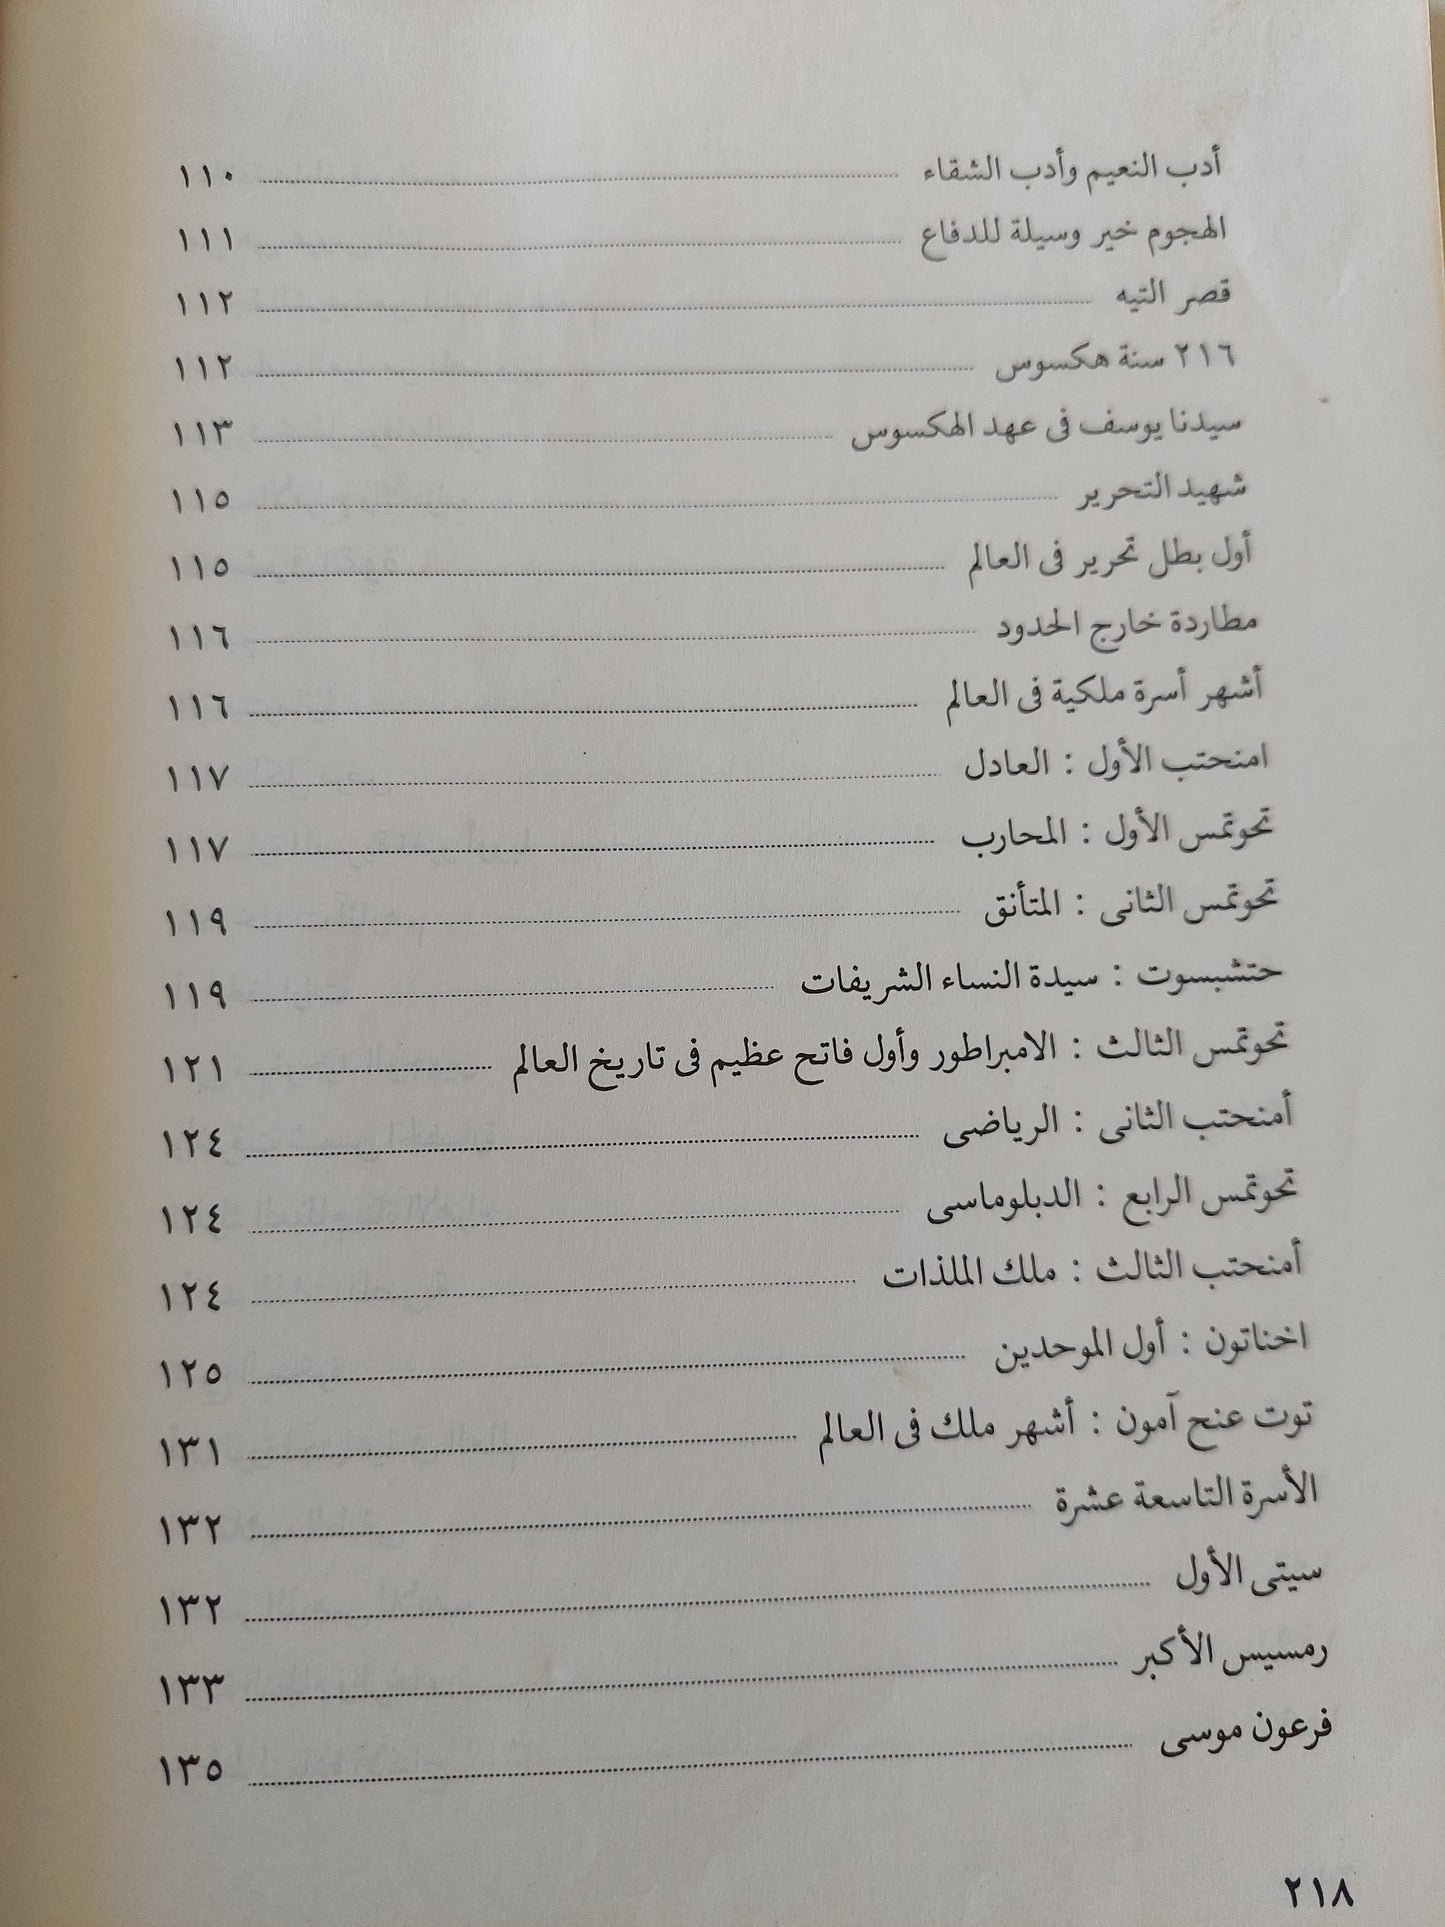 أدب النعيم وأدب الشقاء ........ ١١٠
الهجوم خير وسيلة للدفاع ........ ١١١
قصر التيه ........ ١١٢
٢١٦ سنة هكسوس ........ ١١٢
سيدنا يوسف فى عهد الهكسوس ........ ١١٣
شهيد التحرير ........ ١١٥
أول بطل تحرير فى العالم ........ ١١٥
مطاردة خارج الحدود ........ ١١٦
أشهر أسرة ملكية فى العالم ........ ١١٦
امنحتب الأول : العادل ........ ١١٧
تحوتمس الأول : المحارب ........ ١١٧
تحوتمس الثانى : المتأنق ........ ١١٩
حتشبسوت : سيدة النساء الشريفات ........ ١١٩
تحوتمس الثالث : الامبراطور وأول فاتح عظيم فى تاريخ العالم ........ ١٢١
أمنحتب الثانى : الرياضى ........ ١٢٤
تحوتمس الرابع : الدبلوماسى ........ ١٢٤
أمنحتب الثالث : ملك الملذات ........ ١٢٤
اخناتون : أول الموحدين ........ ١٢٥
توت عنح آمون : أشهر ملك فى العالم ........ ١٣١
الأسرة التاسعة عشرة ........ ١٣٢
سيتى الأول ........ ١٣٢
رمسيس الأكبر ........ ١٣٣
فرعون موسى ........ ١٣٥
٢١٨